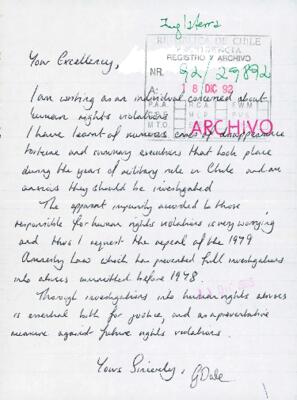 Inglaterra
REPUBLICA DE CHILE
PRESIDENCIA
REGISTRO Y ARCHIVO
NR. 92/29892
A: 18 DIC 92
P.A.A. R.C.A. F.W.M.
ARCHIVO
Your Excellency,
I am writing as an individual concerned about
human rights violations
I have learnt of numerous cases of disappearance
torture and summary executions that took place
during the years of military rule in Chile and am
anxious they should be investigated
The apparent impunity accorded to those
responsible for human rights violations is very worrying
and thus I request the repeal of the 1979
Amnesty Law which has prevented full investigations
into abuses committed before 1978.
Thorough investigations into human rights abuses
is essential both for justice, and as a preventative
measure against future rights violations.
Yours Sincerely, G Dale